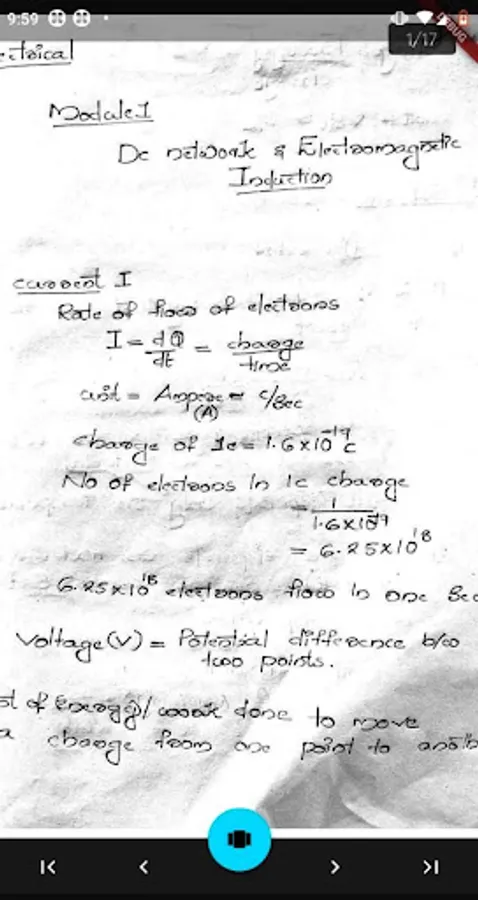 9:59
DEBUG
1/17
ectrical
Module 1
Dc network & Electromagnetic
Induction
current I
Rate of flow of electrons
I = dQ/dt = charge/time
unit = Ampere = c/sec
(A)
charge of 1e = 1.6×10^-19 c
No of electrons in 1c charge
= 1/1.6×10^-19
= 6.25×10^18
6.25×10^18 electrons flow in one Sec
Voltage(V) = Potential difference b/w
two points.
of Energy/work done to move
a charge from one point to anoth